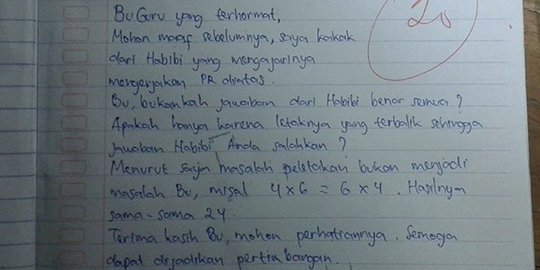 Bu Guru yang terhormat,
20
Mohon maaf sebelumnya, saya kakak
dari Habibi yang mengajarinya
mengerjakan PR diatas.
Bu, bukankah jawaban dari Habibi benar semua?
Apakah hanya karena letaknya yang terbalik sehingga
jawaban Habibi Anda salahkan?
Menurut saya masalah peletakan bukan menjadi
masalah Bu, misal 4 x 6 = 6 x 4. Hasilnya
sama-sama 24
Terima kasih Bu, mohon perhatiannya. Semoga
dapat dijadikan pertimbangan.